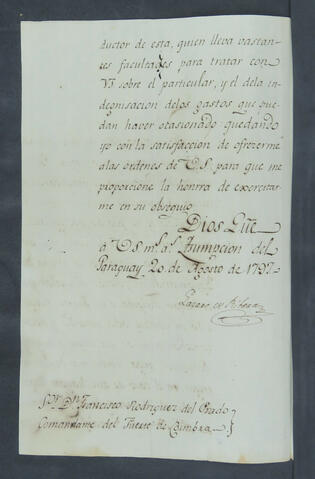 ductor de esta, quien lleva vastan-
tes facultades para tratar con
VS sobre el particular, y el dela in-
degnisacion delos gastos que pue-
dan haver otasionado quedando
yo con la satisfaccion de ofrezerme
alas ordenes de V.S. para que me
proporcione la honrra de exercitar-
me en su obsequio
Dios Gũe
à VS m.s a.s Asumpcion del
Paraguay 20 de Agosto de 1797
Lazaro de Ribera
S.or D.n Francisco Rodriguez del Prado
Comandante del Fuerte de Coimbra.}